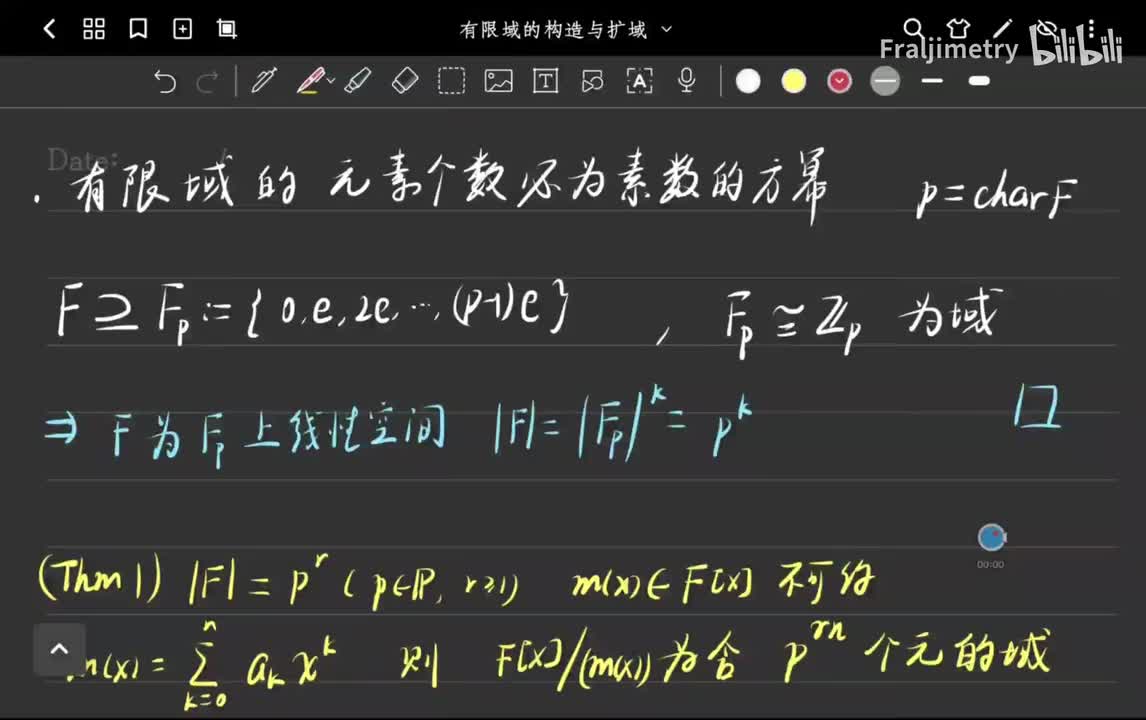 有限域的构造与扩域
Fraljimetry bilibili
Date:
. 有限域的元素个数必为素数的方幂 p=charF
F⊇F_p:={0,e,2e,…,(p-1)e}, F_p≅ℤ_p 为域
⇒ F为F_p上线性空间 |F|=|F_p|^k=p^k □
00:00
(Thm 1) |F|=p^r (p∈ℙ, r≥1) m(x)∈F[x] 不可约
m(x)=∑_{k=0}^{n} a_k x^k 则 F[x]/(m(x))为含 p^{rn} 个元的域